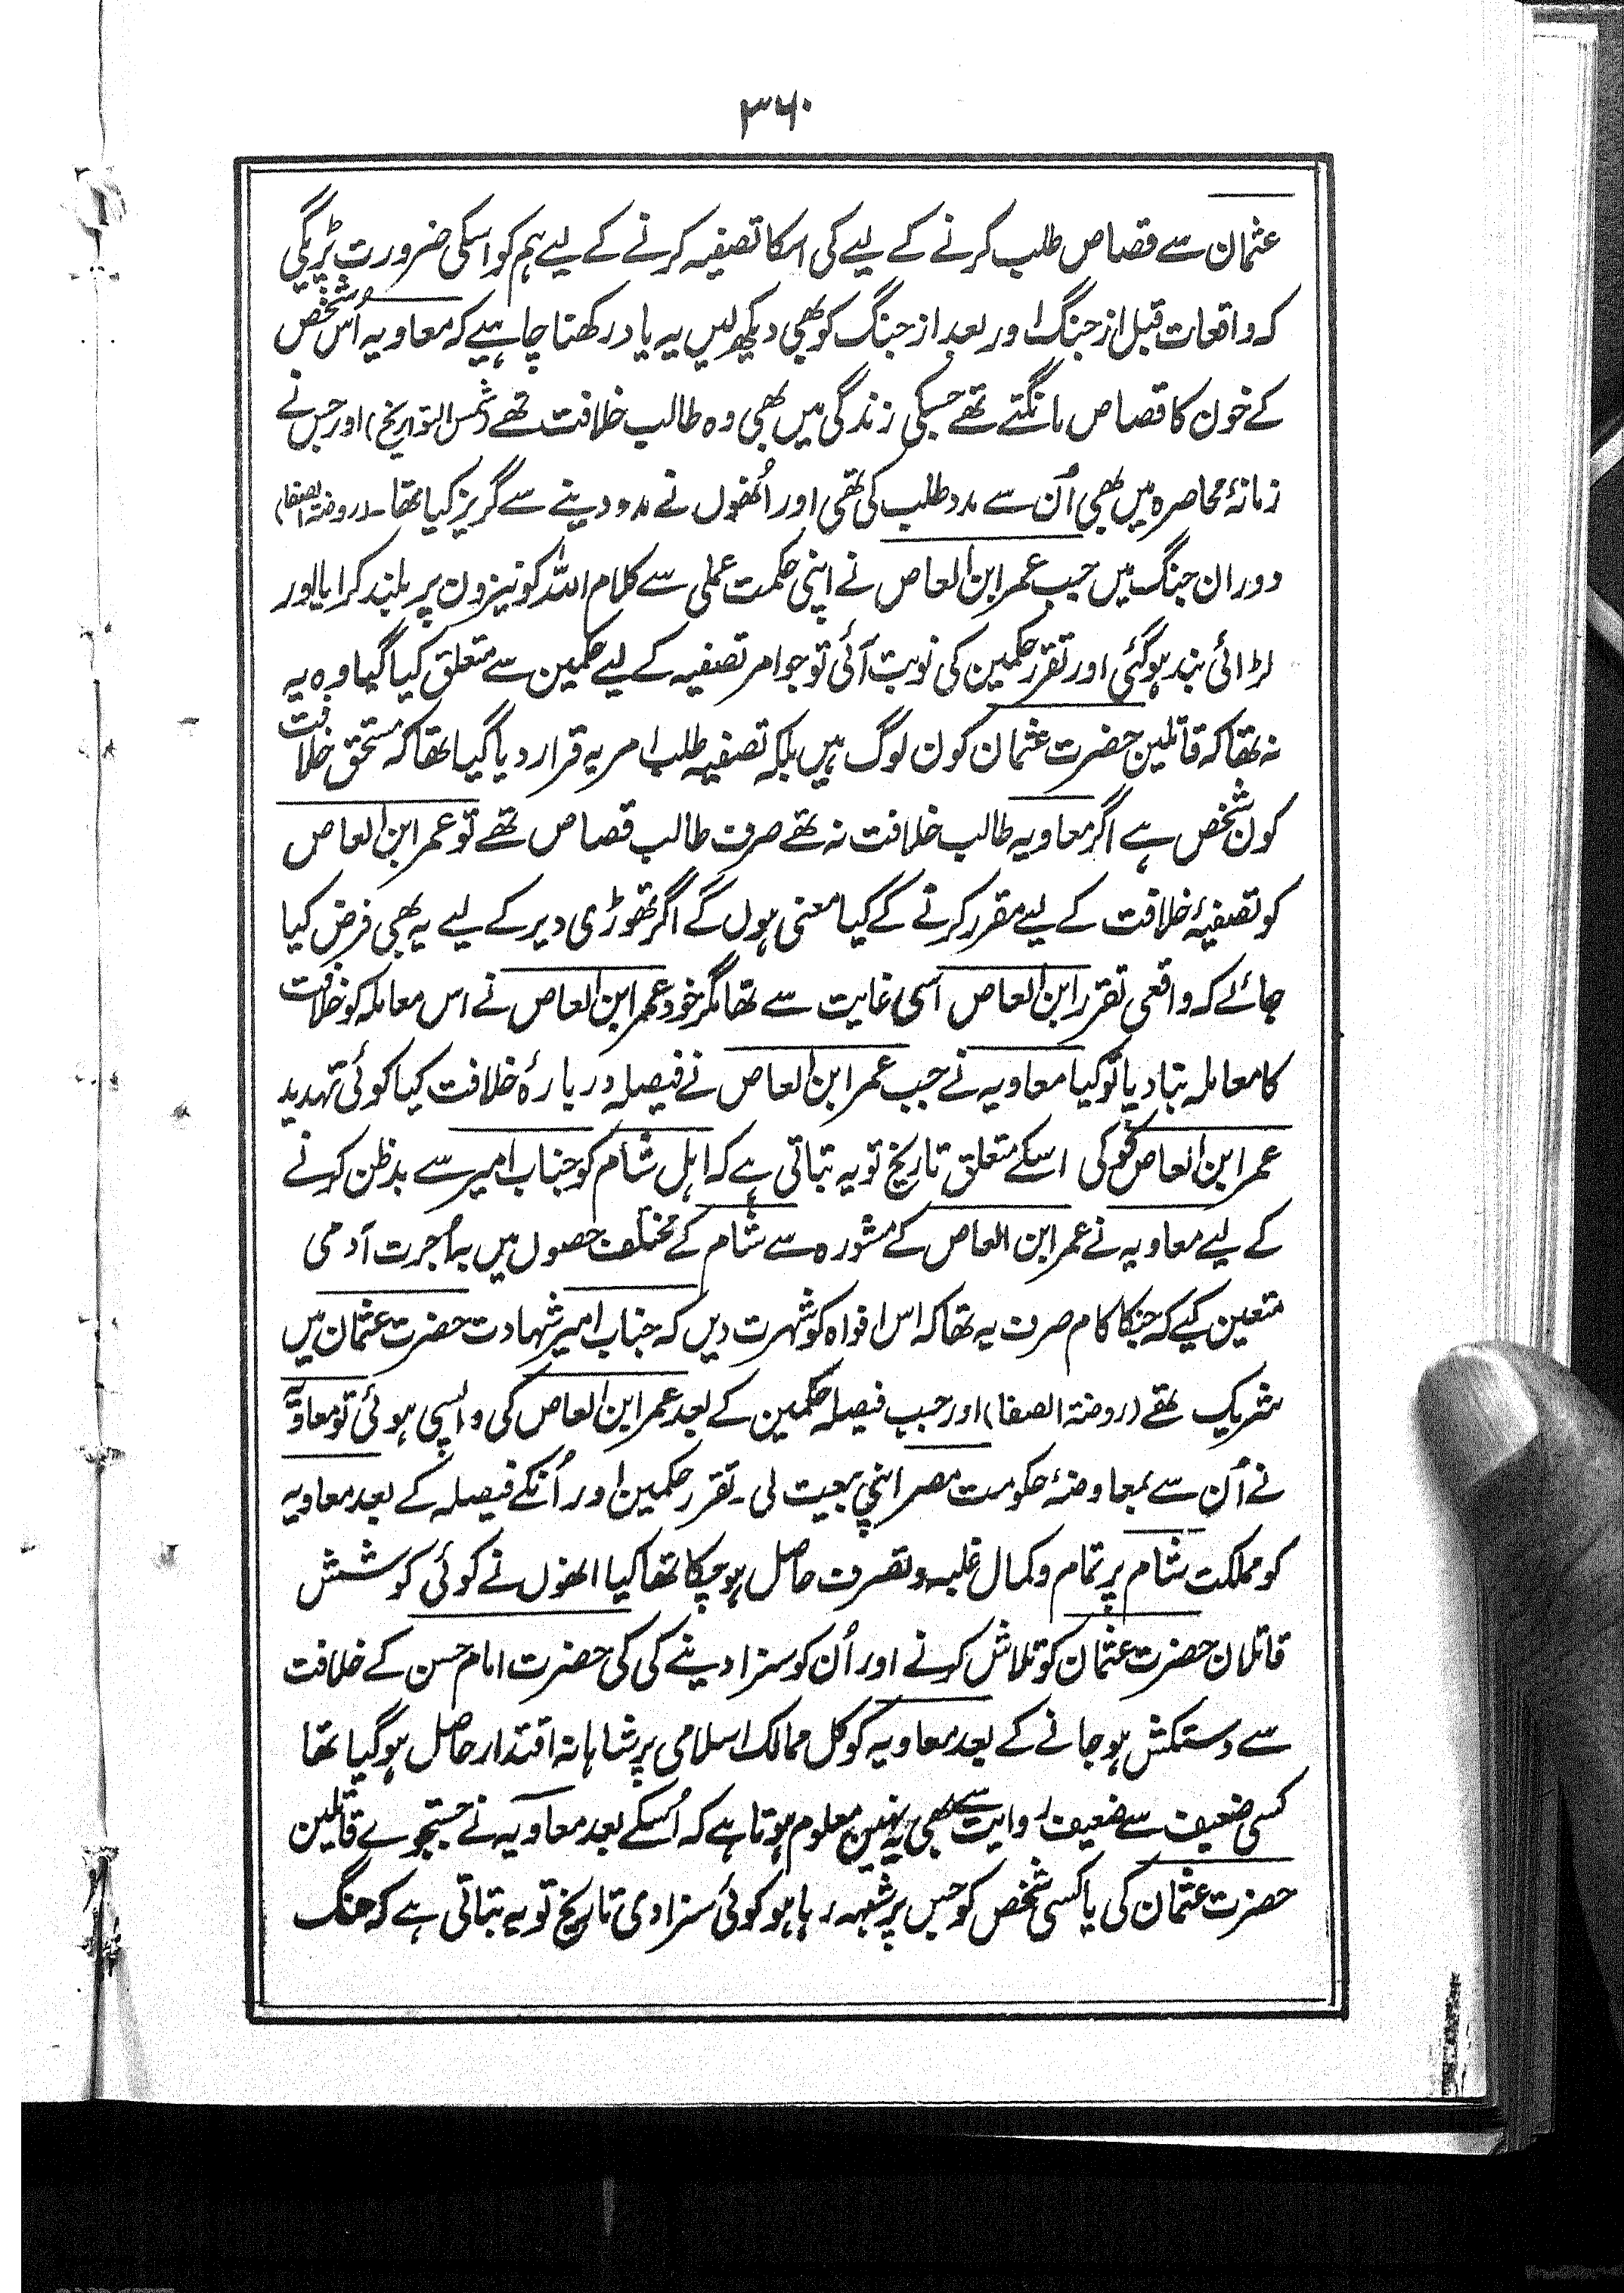 ۳۶۰
عثمان سے قصاص طلب کرنے کے لیے کی اسکا تصفیہ کرنے کے لیے ہم کو اسکی ضرورت پڑیگی
کہ واقعات قبل از جنگ اور بعد از جنگ کو بھی دیکھ لیں یہ یاد رکھنا چاہیے کہ معاویہ اُس شخص
کے خون کا قصاص مانگتے تھے جسکی زندگی میں بھی وہ طالب خلافت تھے (شمس التواریخ) اور جس نے
زمانۂ محاصرہ میں بھی اُن سے مدد طلب کی تھی اور اُنھوں نے مدد دینے سے گریز کیا تھا۔ (روضۃ الصفا)
دوران جنگ میں جب عمر ابن العاص نے اپنی حکمت عملی سے کلام اللہ کو نیزون پر بلند کرایا اور
لڑائی بند ہو گئی اور تقرر حکمین کی نوبت آئی تو جو امر تصفیہ کے لیے حکمین سے متعلق کیا گیا وہ یہ
نہ تھا کہ قاتلین حضرت عثمان کون لوگ ہیں بلکہ تصفیہ طلب امر یہ قرار دیا گیا تھا کہ مستحق خلافت
کون شخص ہے اگر معاویہ طالب خلافت نہ تھے صرف طالب قصاص تھے تو عمر ابن العاص
کو تصفیۂ خلافت کے لیے مقرر کرنے کے کیا معنی ہوں گے اگر تھوڑی دیر کے لیے یہ بھی فرض کیا
جائے کہ واقعی تقرر ابن العاص اسی غایت سے تھا مگر خود عمر ابن العاص نے اس معاملہ کو خلافت
کا معاملہ بنا دیا تو کیا معاویہ نے جب عمر ابن العاص نے فیصلہ دربارۂ خلافت کیا کوئی تہدید
عمر ابن العاص کو کی اسکے متعلق تاریخ تو یہ بتاتی ہے کہ اہل شام کو جناب امیر سے بدظن کرنے
کے لیے معاویہ نے عمر ابن العاص کے مشورہ سے شام کے مختلف حصوں میں بہ اُجرت آدمی
متعین کیے کہ جنکا کام صرف یہ تھا کہ اس افواہ کو شہرت دیں کہ جناب امیر شہادت حضرت عثمان میں
شریک تھے (روضۃ الصفا) اور جب فیصلہ حکمین کے بعد عمر ابن العاص کی واپسی ہوئی تو معاویہ
نے اُن سے بمعاوضۂ حکومت مصر اپنی بیعت لی۔ تقرر حکمین اور اُنکے فیصلہ کے بعد معاویہ
کو مملکت شام پر تمام و کمال غلبہ و تصرف حاصل ہو چکا تھا کیا انھوں نے کوئی کوشش
قاتلان حضرت عثمان کو تلاش کرنے اور اُن کو سزا دینے کی کی حضرت امام حسن کے خلافت
سے دستکش ہو جانے کے بعد معاویہ کو کل ممالک اسلامی پر شاہانہ اقتدار حاصل ہو گیا تھا
کسی ضعیف سے ضعیف روایت سے بھی یہ نہین معلوم ہوتا ہے کہ اُسکے بعد معاویہ نے جستجوے قاتلین
حضرت عثمان کی یا کسی شخص کو جس پر شبہہ رہا ہو کوئی سزا دی تاریخ تو یہ بتاتی ہے کہ جنگ